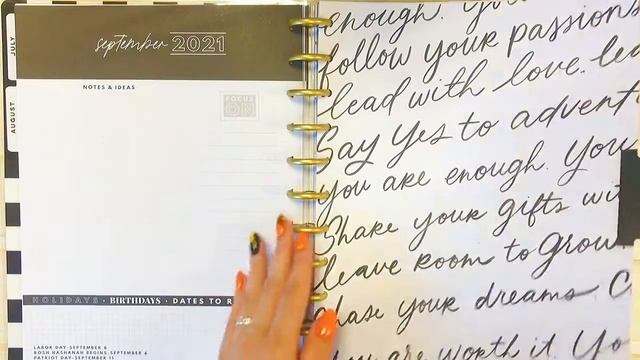 JULY
AUGUST
september 2021
NOTES & IDEAS
FOCUS
ON
HOLIDAYS • BIRTHDAYS • DATES TO R
LABOR DAY-SEPTEMBER 6
ROSH HASHANAH BEGINS-SEPTEMBER 6
PATRIOT DAY-SEPTEMBER 11
enough. You
follow your passion
lead with love. lea
Say yes to advent
you are enough. You
Share your gifts wi
leave room to grow.
chase your dreams C
you are worth it. Yo